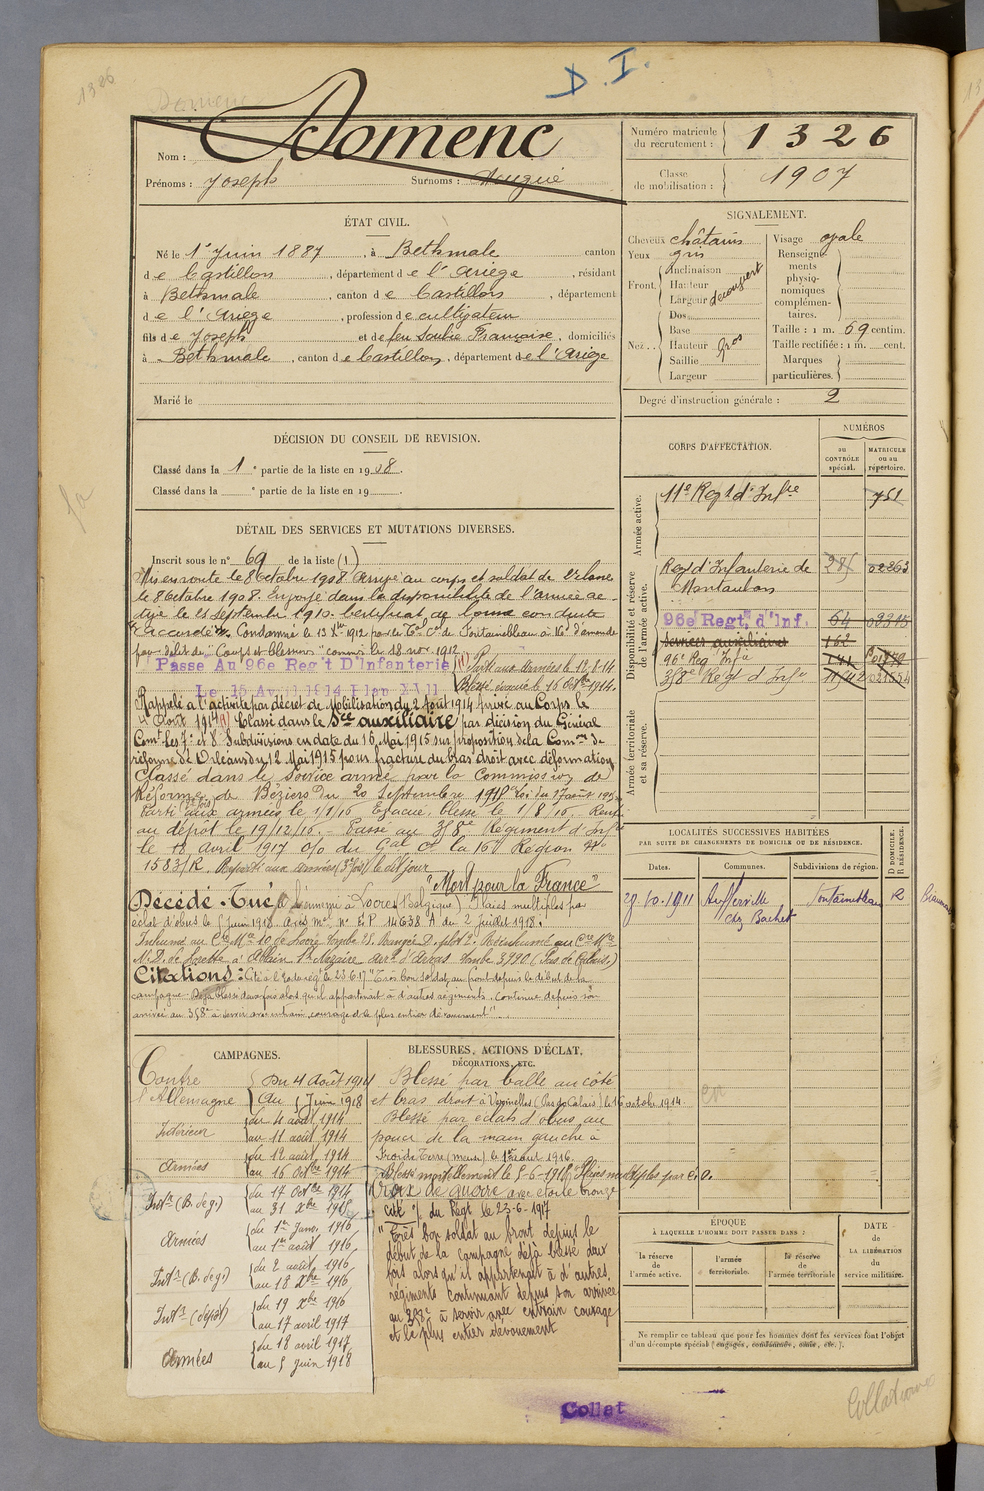 1326
Domenc
D. I.
Nom : Domenc
Prénoms : Joseph Surnoms :
Numéro matricule du recrutement : 1326
Classe de mobilisation : 1907
ÉTAT CIVIL.
Né le 1er Juin 1887, à Bethmale canton
de Castillon, département de l'Ariège, résidant
à Bethmale, canton de Castillon, département
de l'Ariège, profession de cultivateur
fils de Joseph et de feu Soulié Françoise, domiciliés
à Bethmale, canton de Castillon, département de l'Ariège
Marié le
SIGNALEMENT.
Cheveux châtains
Yeux gris
Front. Inclinaison
Hauteur
Largeur découvert
Nez.. Dos
Base
Hauteur gros
Saillie
Largeur
Visage ovale
Renseignements physionomiques complémentaires.
Taille : 1 m. 69 centim.
Taille rectifiée : 1 m. cent.
Marques particulières.
Degré d'instruction générale : 2
DÉCISION DU CONSEIL DE REVISION.
Classé dans la 1e partie de la liste en 1908.
Classé dans la e partie de la liste en 19
CORPS D'AFFECTATION.
NUMÉROS
au CONTRÔLE spécial.
MATRICULE ou au répertoire.
Armée active.
11e Regt d'Infie 751
Disponibilité et réserve de l'armée active.
Regt d'Infanterie de Montauban 02263
96e Regt. d'Inf. 64 02315
Services auxiliaires 162
96e Reg Infie 141
358e Regt d'Infie
Armée territoriale et sa réserve.
DÉTAIL DES SERVICES ET MUTATIONS DIVERSES.
Inscrit sous le no 69 de la liste (1)
Mis en route le 8 Octobre 1908. Arrivé au corps et soldat de 2e classe
le 8 Octobre 1908. Envoyé dans la disponibilité de l'armée ac-
tive le 25 septembre 1910. Certificat de bonne conduite
accordé. Condamné le 13 Xbre 1912 par le Tal Cel de Fontainebleau à 16f d'amende
pour délit de "Coups et blessures" commis le 18 nov. 1912
Passé Au 96e Reg't D'Infanterie
Le 15 Avril 1914 Plan XVII
Parti aux armées le 12.8.14
Blessé évacué le 16 Octbre 1914.
Rappelé à l'activité par décret de Mobilisation du 2 Août 1914 arrivé au Corps le
4 Août 1914 Classé dans le Sce auxiliaire par décision du Général
Comt les 7e et 8e Subdivisions en date du 16 Mai 1915 sur proposition de la Comon de
réforme de Orléans du 12 Mai 1915 pour fracture du bras droit avec déformation
Classé dans le Service armé par la Commission de
Réforme de Béziers du 20 Septembre 1915 Loi du 17 août 1915
Parti aux armées le 1/1/16 Evacué, blessé le 1/8/16. Rentré
au dépôt le 19/12/16. - Passé au 358e Régiment d'Infie
le 18 Avril 1917 O/o du Gal Ct la 16e Région No
1583/R. Reparti aux armées (3e fois) le dit jour
"Mort pour la France"
Décédé . Tué à l'ennemi à Locre (Belgique) Plaies multiples par
éclat d'obus le 5 Juin 1918. Avis Mel No E.P. 14638 A du 2 Juillet 1918.
Inhumé au Cre Mre 10 de Locre tombe 25. Réinhumé au Cre Mre
N.D. de Lorette à Ablain St Nazaire arrt d'Arras tombe 3790 (Pas de Calais.)
Citations : Cité à l'ordre régt le 23.6.17 "Très bon soldat, au front depuis le début de la
campagne. Déjà blessé deux fois alors qu'il appartenait à d'autres régiments. Continue depuis son
arrivée au 358e à servir avec entrain, courage et le plus entier dévouement".
LOCALITÉS SUCCESSIVES HABITÉES
PAR SUITE DE CHANGEMENTS DE DOMICILE OU DE RÉSIDENCE.
Dates.
Communes.
Subdivisions de région.
D DOMICILE, R RÉSIDENCE.
29.10.1911 Aufferville chez Bachet Fontainebleau R
CAMPAGNES.
Contre l'Allemagne
Du 4 Août 1914
Au 5 Juin 1918
Intérieur
du 4 août 1914
au 11 août 1914
Armées
du 12 août 1914
au 16 Octbre 1914
Intr (B. de g.)
du 17 Octbre 1914
au 31 Xbre 1915
Armées
du 1er janv. 1916
au 1er août 1916
Intr (B. de g.)
du 2 août 1916
au 18 Xbre 1916
Intr (dépôt)
du 19 Xbre 1916
au 17 avril 1917
Armées
du 18 avril 1917
au 5 juin 1918
BLESSURES, ACTIONS D'ÉCLAT,
DÉCORATIONS, ETC.
Blessé par balle au côté
et bras droit à Vermelles (Pas de Calais) le 16 octobre 1914.
Blessé par éclats d'obus au
pouce de la main gauche à
Froide Terre (Meuse) le 1er août 1916.
Blessé mortellement le 5-6-1918. Plaies multiples par é.o.
Croix de guerre avec étoile bronze
Cité O. du Régt le 23-6-1917
"Très bon soldat au front depuis le
début de la campagne déjà blessé deux
fois alors qu'il appartenait à d'autres
régiments continuant depuis son arrivée
au 358e à servir avec entrain courage
et le plus entier dévouement
ÉPOQUE
À LAQUELLE L'HOMME DOIT PASSER DANS :
la réserve de l'armée active.
l'armée territoriale.
la réserve de l'armée territoriale
DATE DE LA LIBÉRATION du service militaire.
Ne remplir ce tableau que pour les hommes dont les services font l'objet
d'un décompte spécial (engagés, condamnés, omis, etc.).
Collat
Collationné